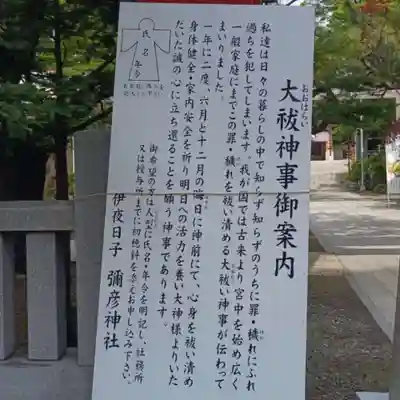 大祓神事御案内
おおはらい
私達は日々の暮らしの中で知らず知らずのうちに罪・穢れにふれ
けが
過ちを犯してしまいます。我が国では古来より宮中を始め広く
一般家庭にまでこの罪・穢れを祓い清める大祓い神事が伝わって
まいりました。
一年に二度、六月と十二月の晦日に神前にて、心身を祓い清め
身体健全・家内安全を祈り明日への活力を養い大神様よりいた
だいた誠の心に立ち還ることを願う神事であります。
御希望の方は人型に氏名・年令を明記し、社務所
又は授与所までに初穂料を添えお申し込み下さい。
伊夜日子 彌彦神社
氏名 年令